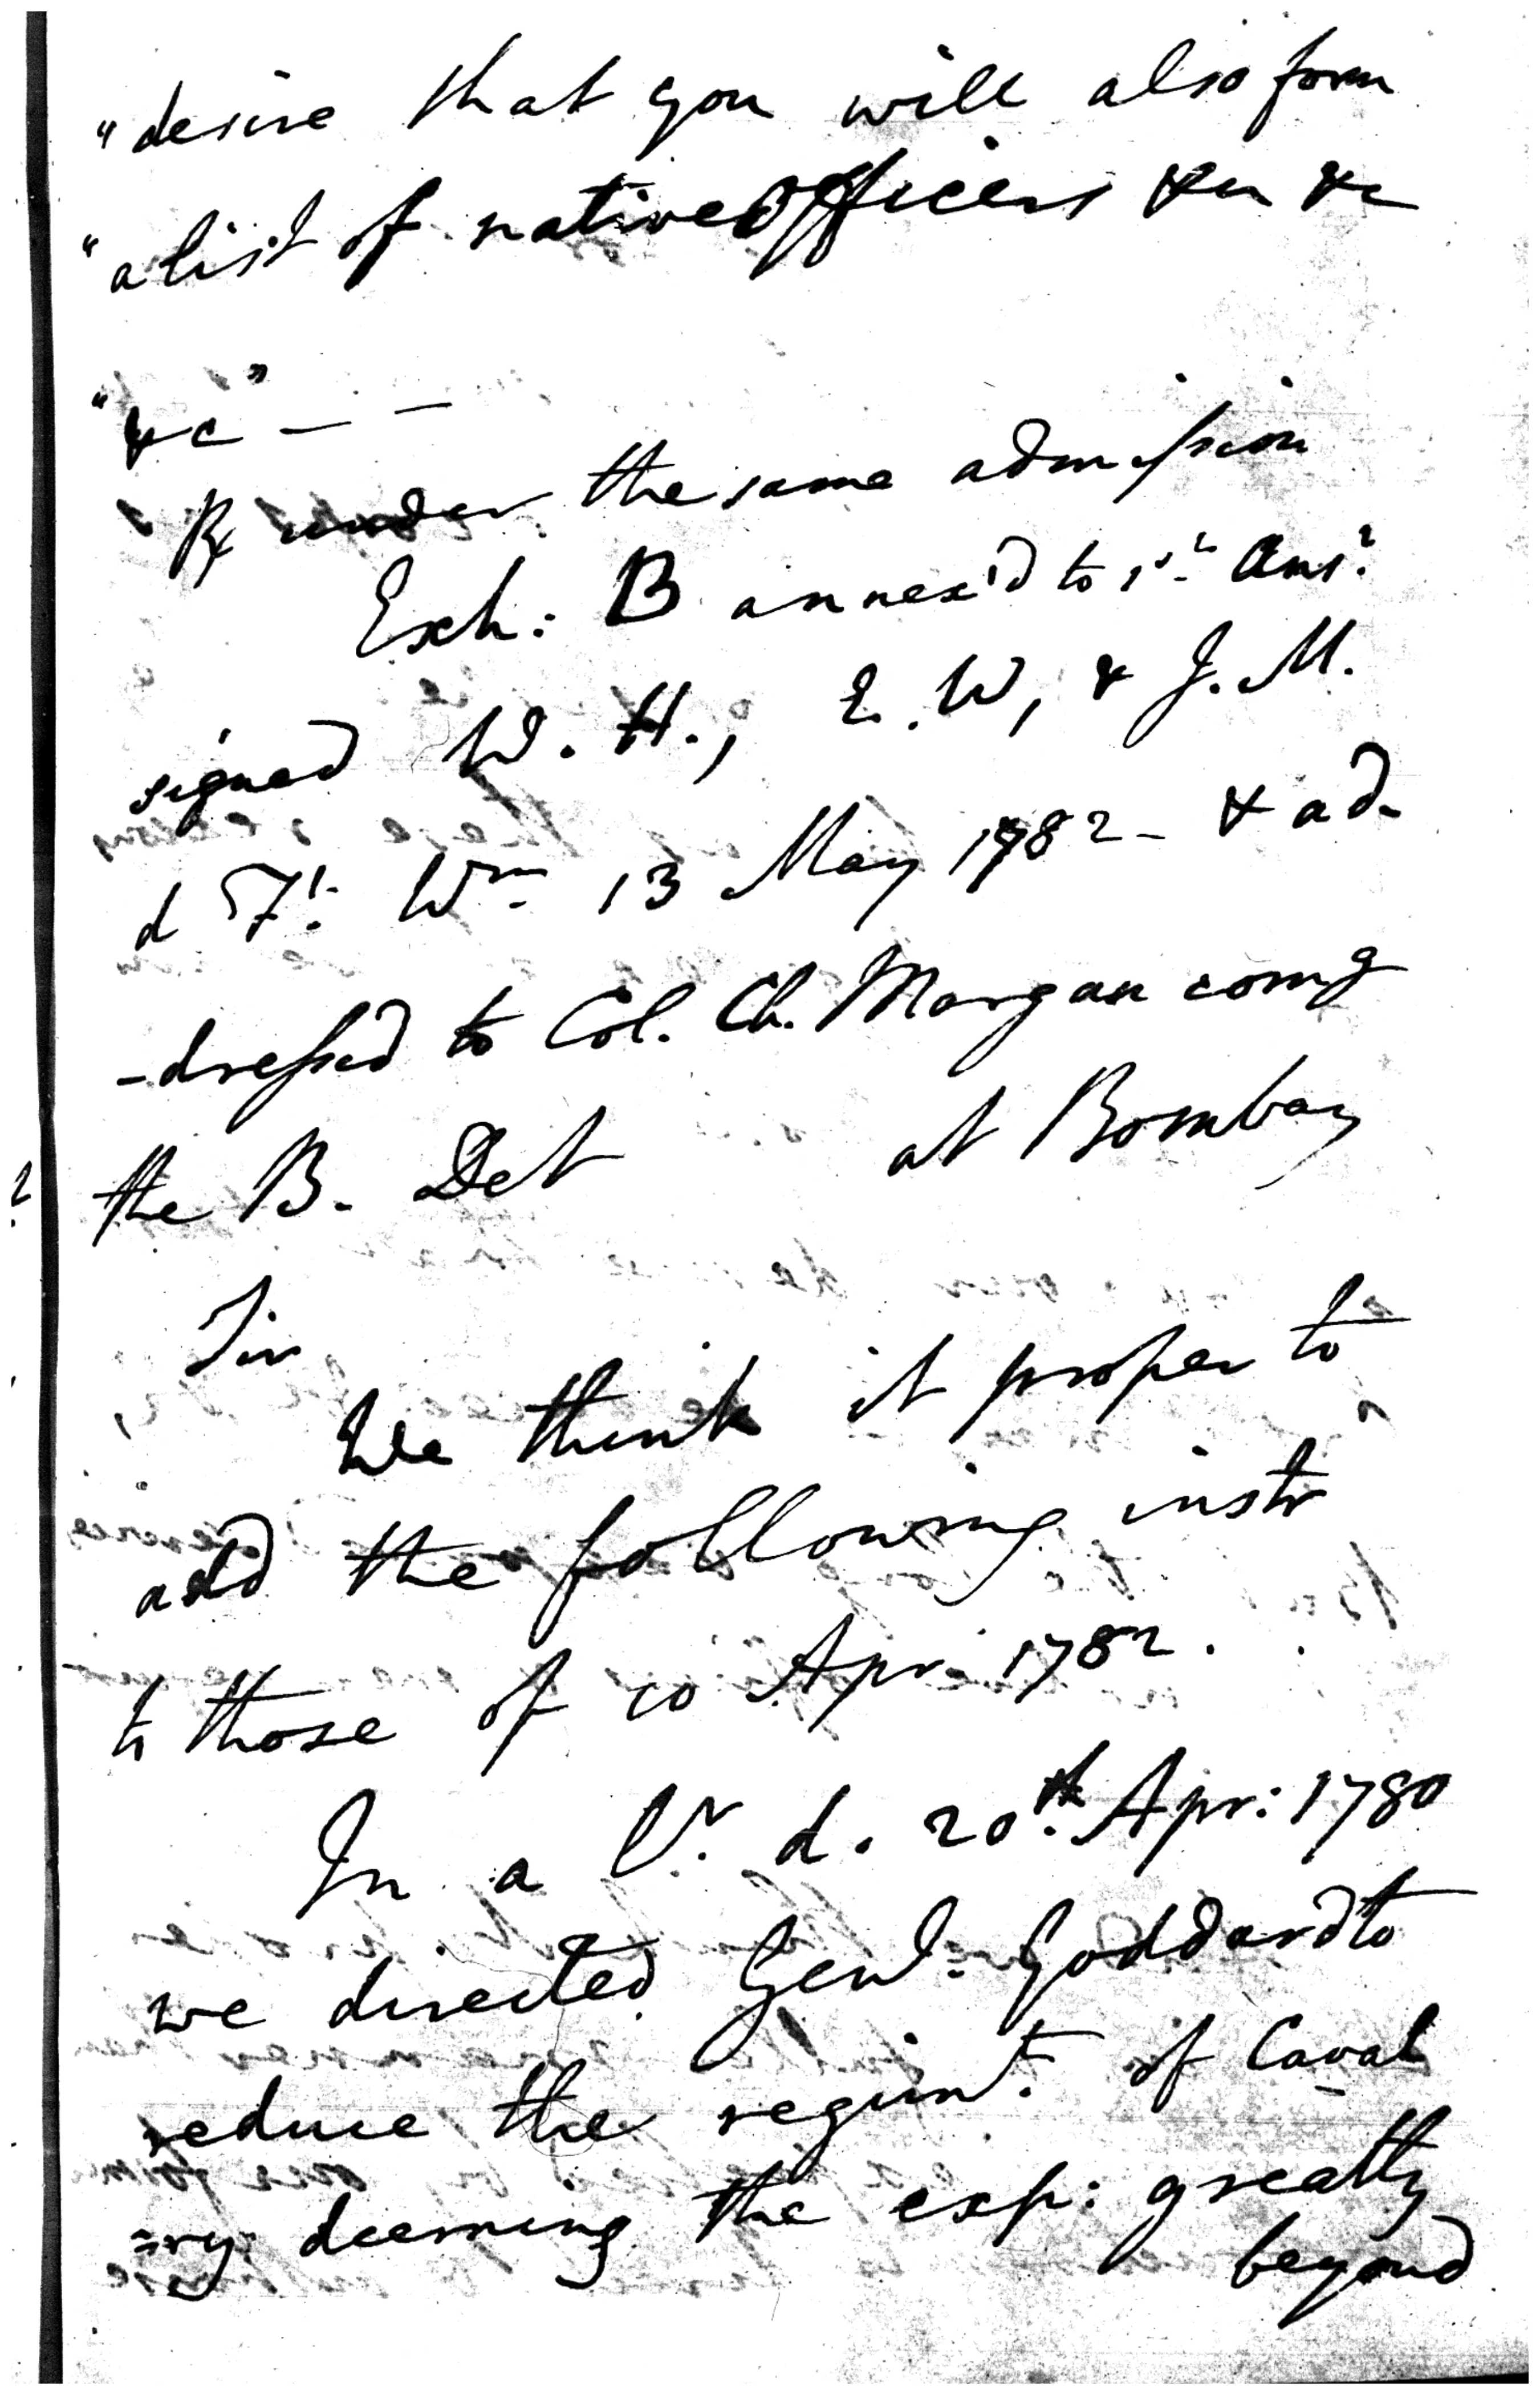 "desire that you will also form
"a list of native Officers &c &c
"&c" — —
Rx under the same admission
Exh: B annex'd to 1st Ansr
signed W. H., E. W, & J. M.
d Ft. Wm 13 May 1782 - & ad-
-dressed to Col. Ch. Morgan comg
the B. Det at Bombay
Sir
We think it proper to
add the following instr
to those of 10 Apr 1782.
In a lr. d. 20th. Apr: 1780
we directed Genl. Goddard to
reduce the regimt. of Caval
=ry deeming the exp: greatly
beyond